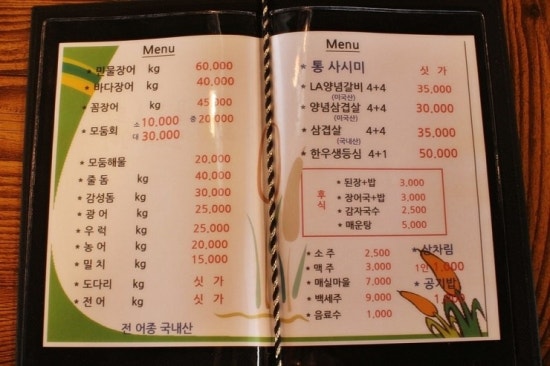 Menu
* 민물장어 kg 60,000
* 바다장어 kg 40,000
* 꼼장어 kg 45,000
* 모둠회 소 10,000 중 20,000
대 30,000
* 모둠해물 20,000
* 줄 돔 kg 40,000
* 감성돔 kg 30,000
* 광 어 kg 25,000
* 우 럭 kg 25,000
* 농 어 kg 20,000
* 밀 치 kg 15,000
* 도다리 kg 싯 가
* 전 어 kg 싯 가
전 어종 국내산
Menu
* 통 사시미 싯 가
* LA양념갈비 4+4 35,000
(미국산)
* 양념삼겹살 4+4 30,000
(미국산)
* 삼겹살 4+4 35,000
(국내산)
* 한우생등심 4+1 50,000
후식
* 된장+밥 3,000
* 장어국+밥 3,000
* 감자국수 2,500
* 매운탕 5,000
* 소 주 2,500
* 맥 주 3,000
* 매실마을 7,000
* 백세주 9,000
* 음료수 1,000
* 상차림
1인 1,000
* 공기밥